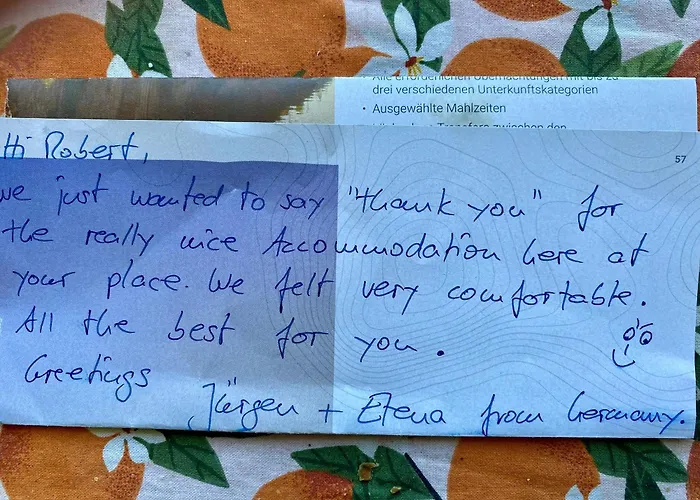 Alle erforderlichen Übernachtungen mit bis zu
drei verschiedenen Unterkunftskategorien
• Ausgewählte Mahlzeiten
zwischen den
57
Hi Robert,
we just wanted to say "thank you" for
the really nice Accommodation here at
your place. We felt very comfortable.
All the best for you.
Greetings
Jürgen + Elena from Germany.